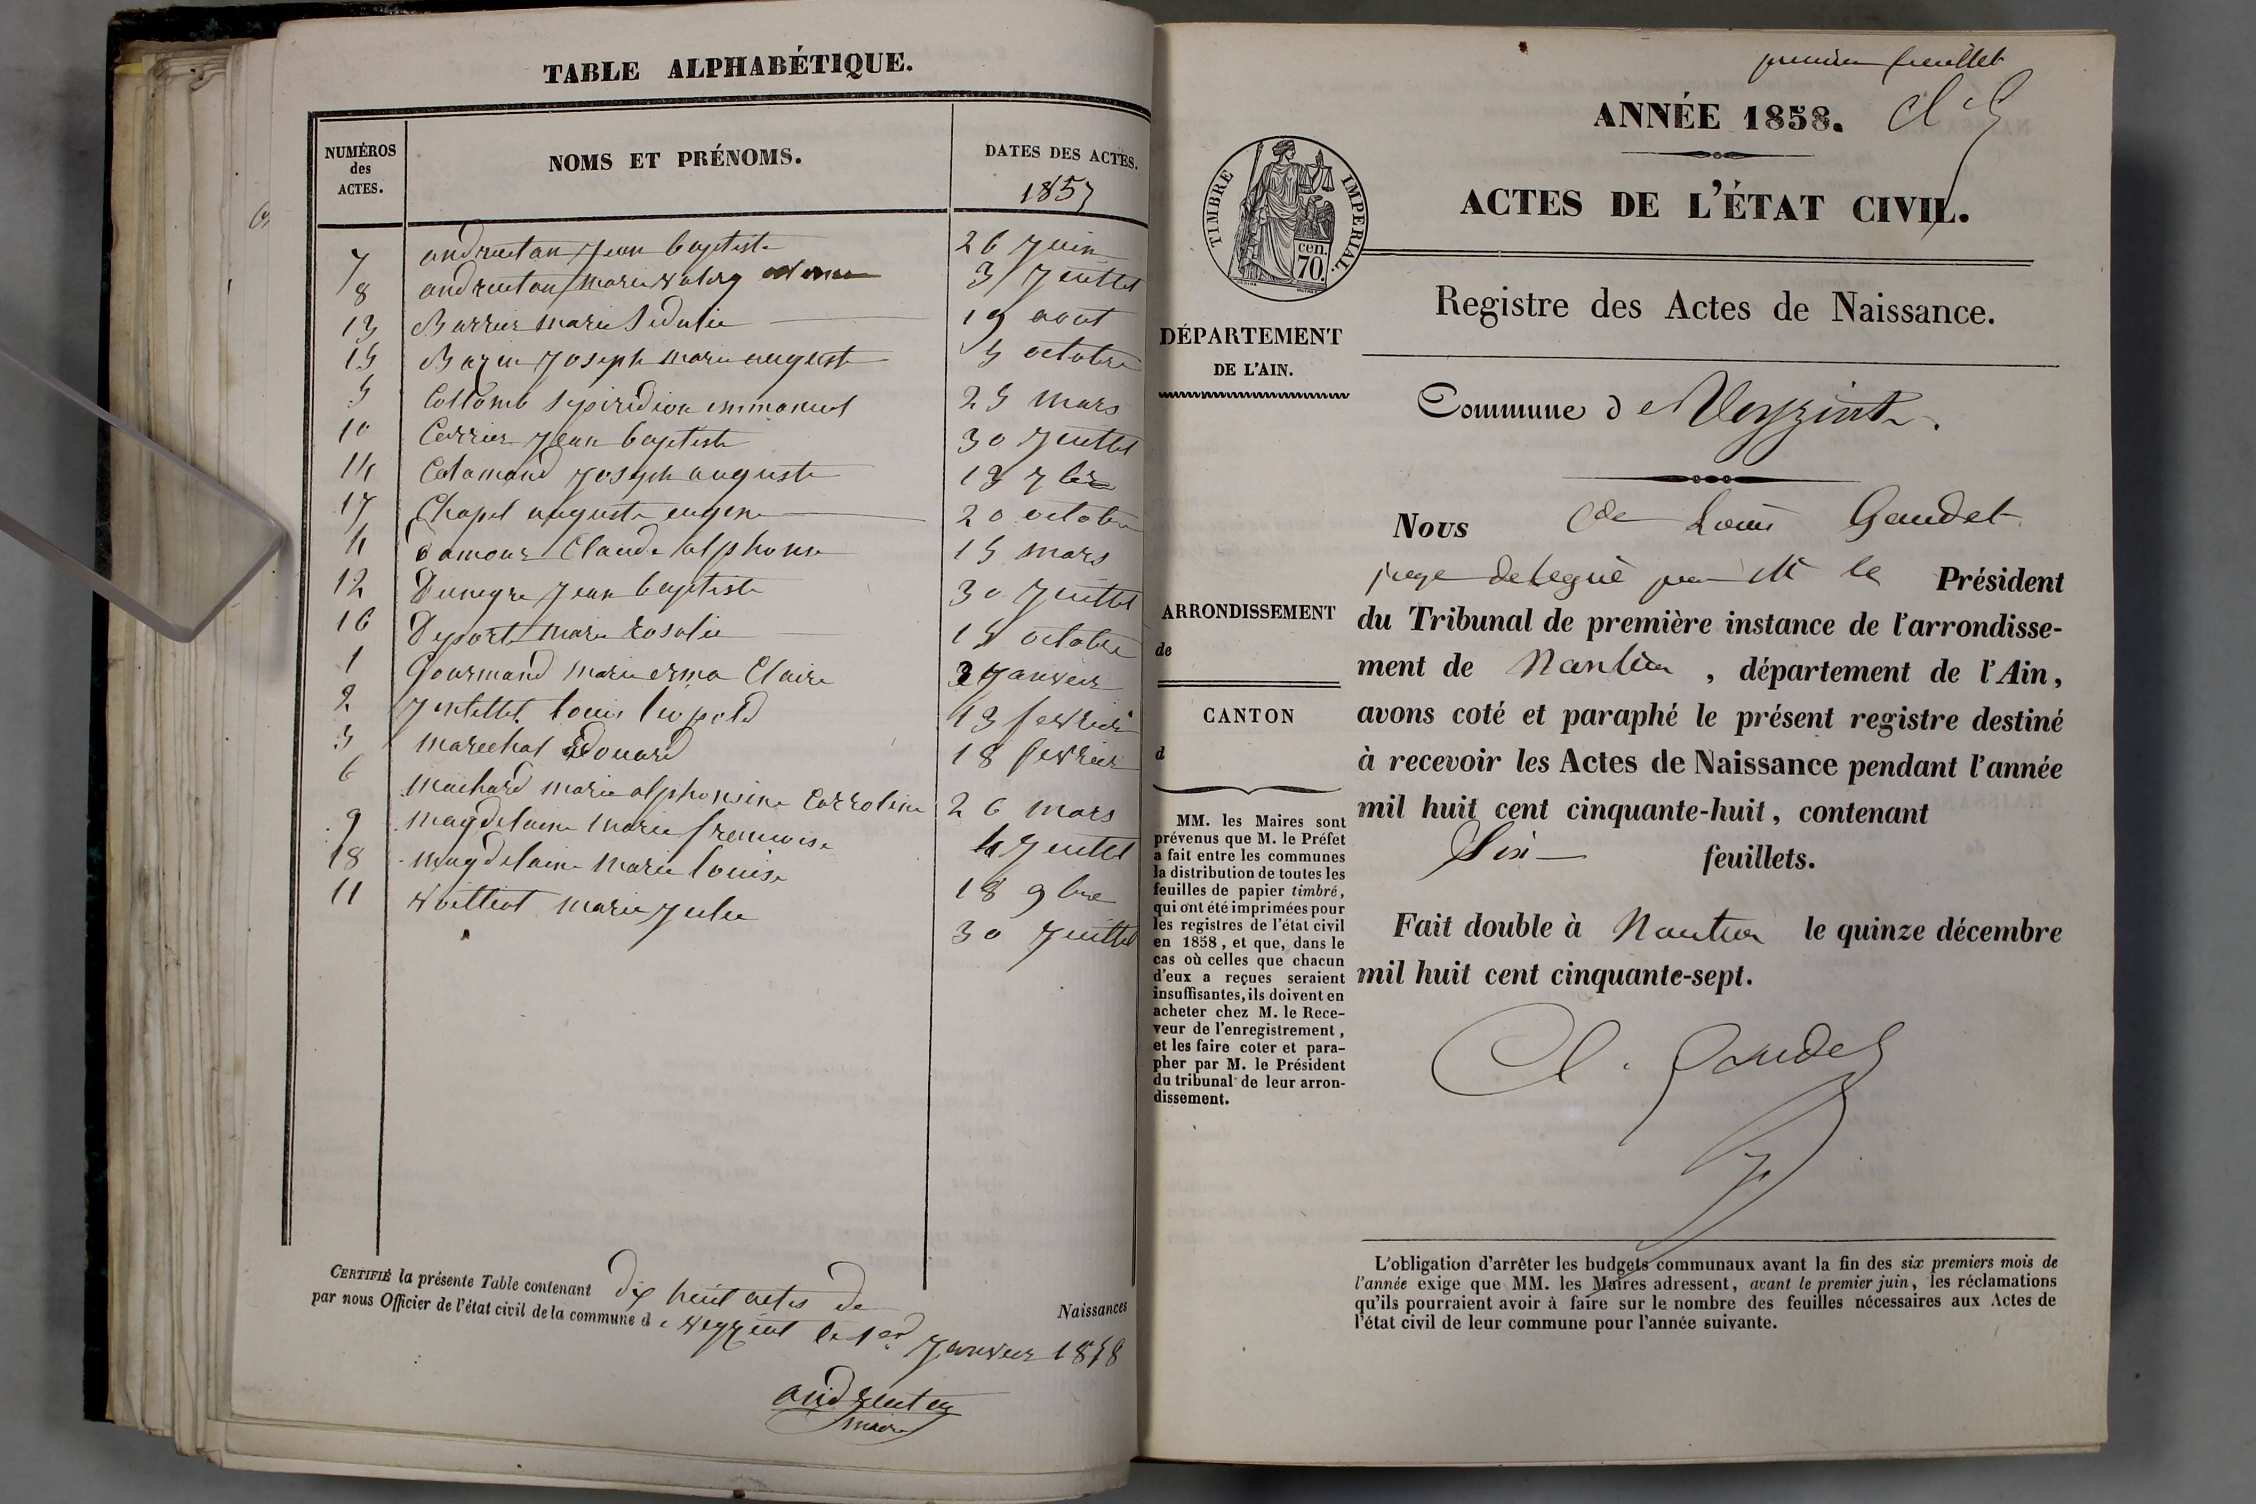 TABLE ALPHABÉTIQUE.
NUMÉROS
des
ACTES.
NOMS ET PRÉNOMS.
DATES DES ACTES.
1857
7 andruetan Jean baptiste 26 Juin
8 andruetan marie 3 Juillet
13 Barrier marie Sidulie 19 aout
15 Bazin Joseph marie auguste 5 octobre
5 Collomb Spiridion emmanuel 25 mars
10 Carrier Jean baptiste 30 Juillet
14 Catamand Joseph auguste 13 7bre
17 Chapel auguste eugene 20 octobre
4 Damour Claude alphonse 15 mars
12 Dunegre Jean baptiste 30 Juillet
16 Deporte marie rosalie 15 octobre
1 Gourmand marie erma Claire Janvier
2 Jentellet louis leopold 13 fevrier
3 marechal Edouard 18 fevrier
6 machard marie alphonsine Carroline 26 mars
9 magdelaine marie francoise 4 Juillet
18 magdelaine marie louise 18 9bre
11 voilliot marie Julie 30 Juillet
CERTIFIÉ la présente Table contenant dix huit actes de Naissances
par nous Officier de l'état civil de la commune de Veyziat le 1er Janvier 1858
andruetan
maire
premier feuillet
ANNÉE 1858.
ACTES DE L'ÉTAT CIVIL.
TIMBRE IMPERIAL.
cen.
70.
Registre des Actes de Naissance.
DÉPARTEMENT
DE L'AIN.
Commune de Veyziat.
Nous Cde Louis Gaudet
juge delegué par Mr le Président
du Tribunal de première instance de l'arrondisse-
ment de Nantua, département de l'Ain,
avons coté et paraphé le présent registre destiné
à recevoir les Actes de Naissance pendant l'année
mil huit cent cinquante-huit, contenant
Six feuillets.
Fait double à Nantua le quinze décembre
mil huit cent cinquante-sept.
Cl. Gaudet
ARRONDISSEMENT
de
CANTON
d
MM. les Maires sont
prévenus que M. le Préfet
a fait entre les communes
la distribution de toutes les
feuilles de papier timbré,
qui ont été imprimées pour
les registres de l'état civil
en 1858, et que, dans le
cas où celles que chacun
d'eux a reçues seraient
insuffisantes, ils doivent en
acheter chez M. le Rece-
veur de l'enregistrement,
et les faire coter et para-
pher par M. le Président
du tribunal de leur arron-
dissement.
L'obligation d'arrêter les budgets communaux avant la fin des six premiers mois de
l'année exige que MM. les Maires adressent, avant le premier juin, les réclamations
qu'ils pourraient avoir à faire sur le nombre des feuilles nécessaires aux Actes de
l'état civil de leur commune pour l'année suivante.